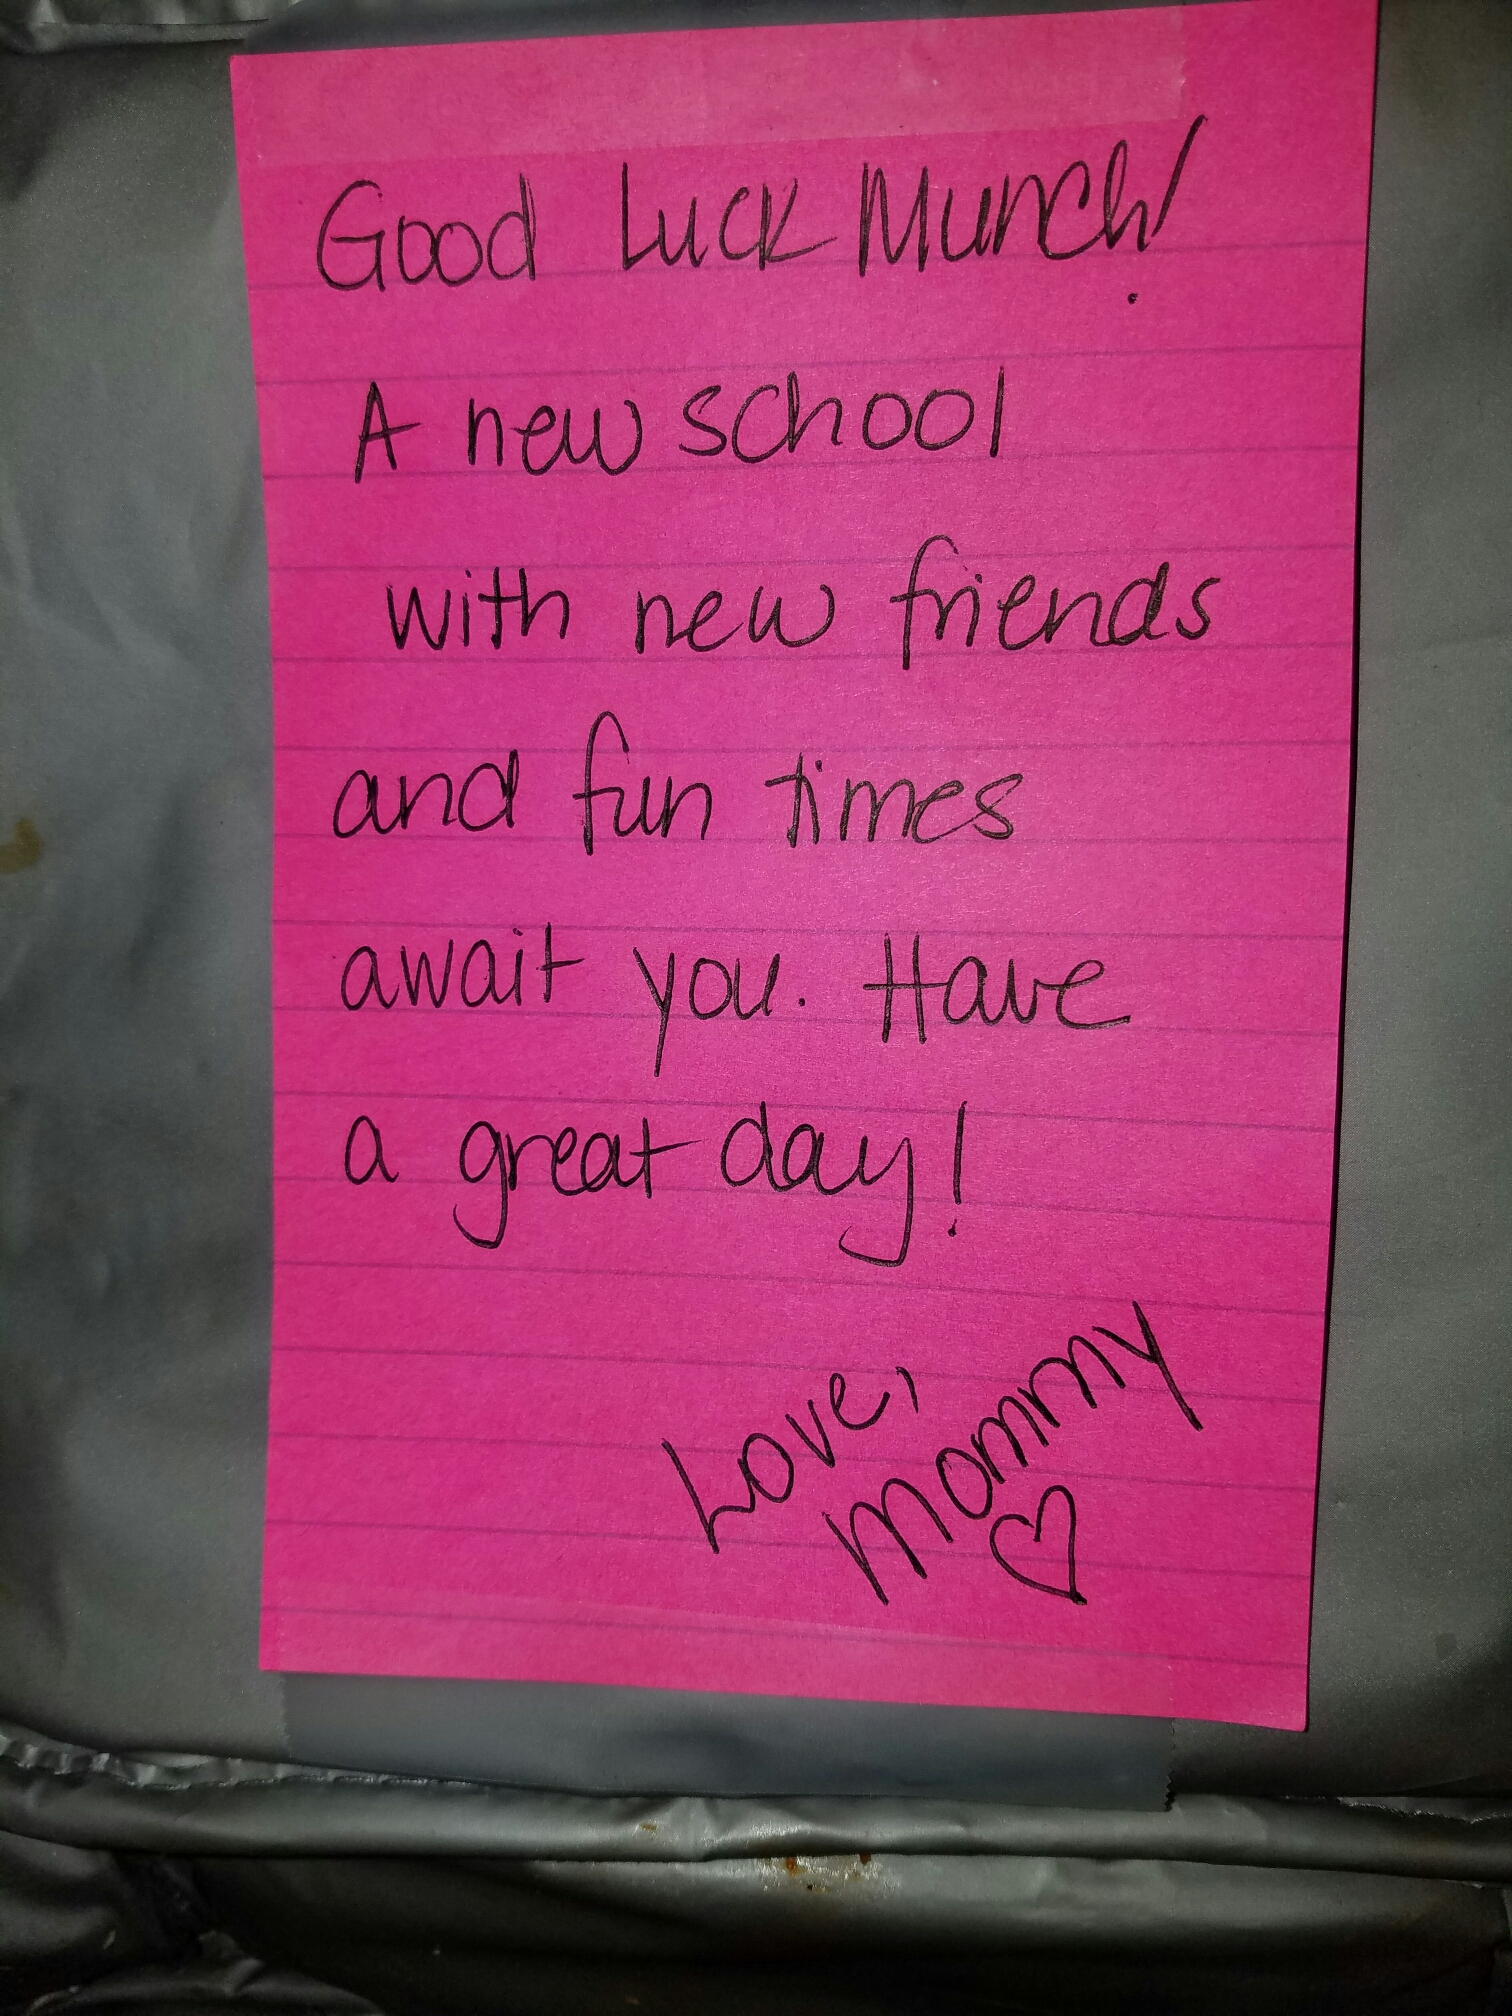 Good Luck Munch!
A new school
with new friends
and fun times
await you. Have
a great day!
Love,
Mommy
♡